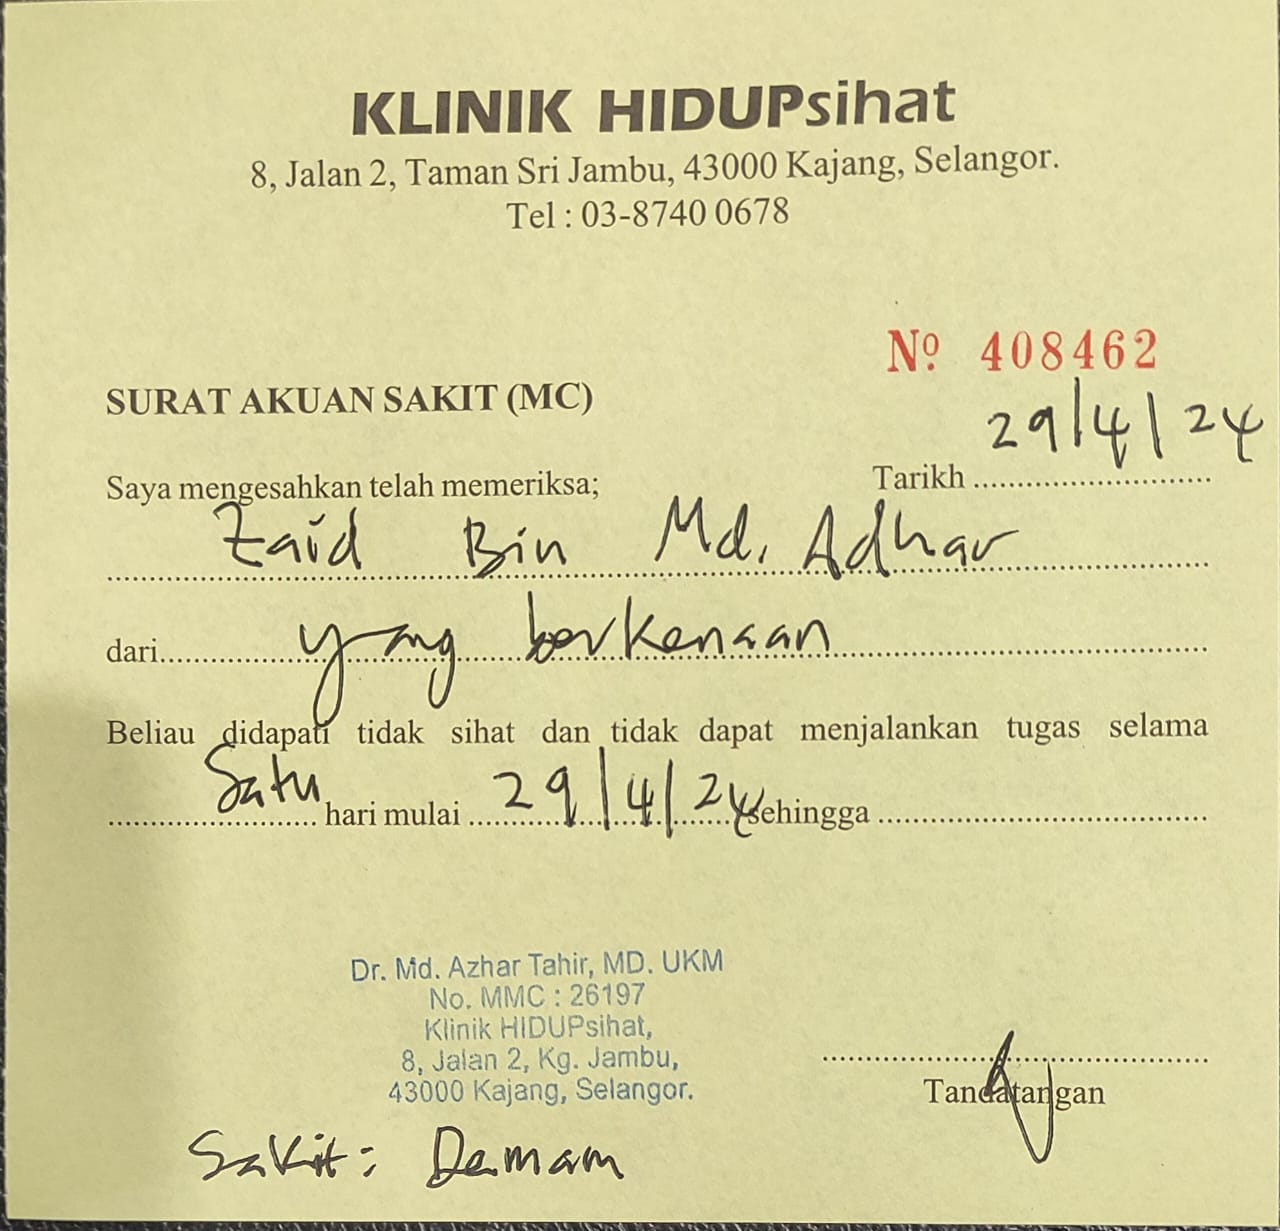 KLINIK HIDUPsihat
8, Jalan 2, Taman Sri Jambu, 43000 Kajang, Selangor.
Tel : 03-8740 0678
Nº 408462
SURAT AKUAN SAKIT (MC)
29/4/24
Saya mengesahkan telah memeriksa; Tarikh
Zaid Bin Md. Adhar
dari yang berkenaan
Beliau didapati tidak sihat dan tidak dapat menjalankan tugas selama
Satu hari mulai 29/4/24 sehingga
Dr. Md. Azhar Tahir, MD. UKM
No. MMC : 26197
Klinik HIDUPsihat,
8, Jalan 2, Kg. Jambu,
43000 Kajang, Selangor.
Tandatangan
Sakit: Demam